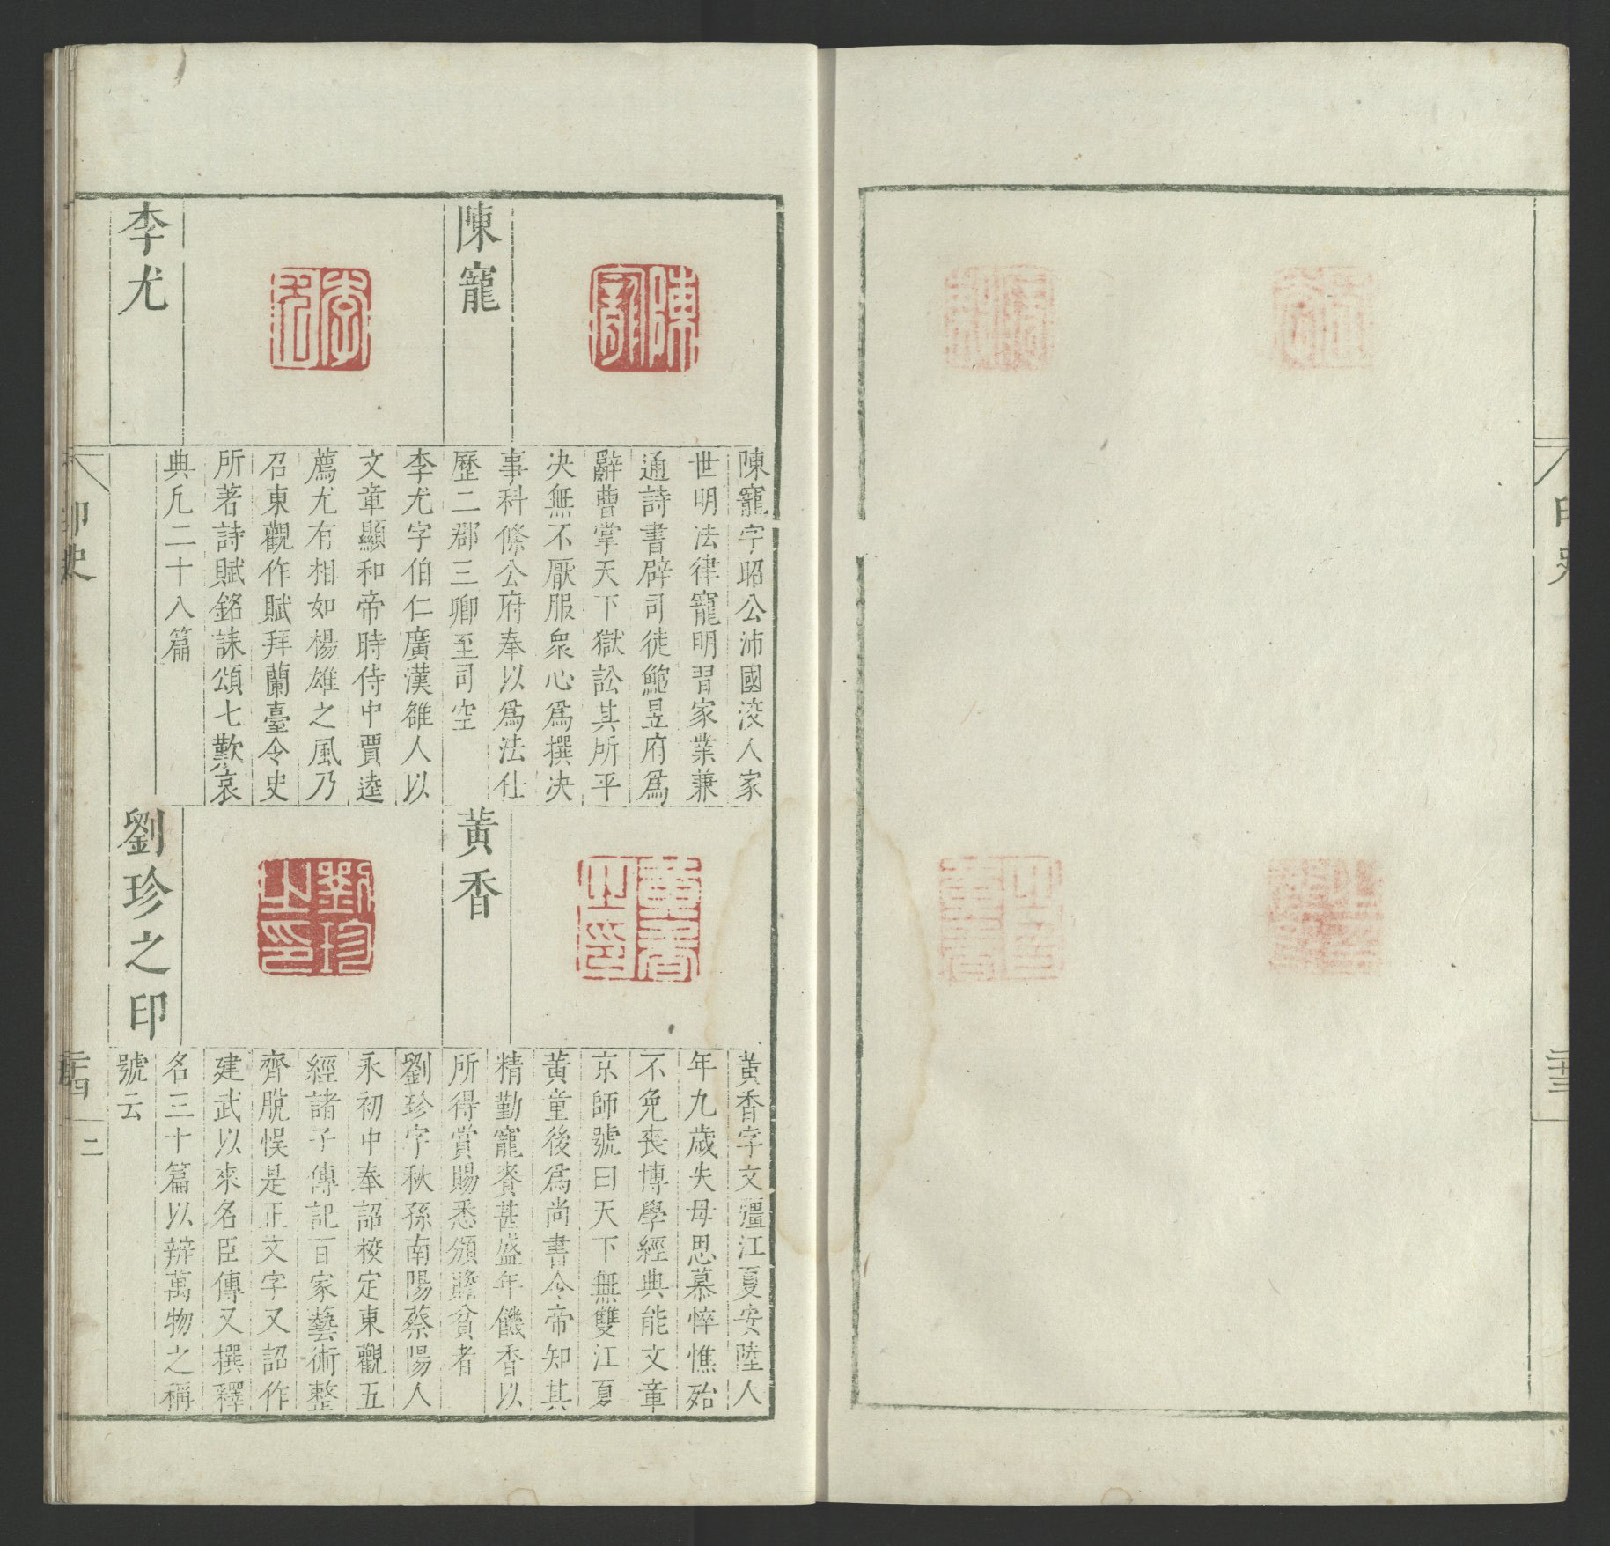 印史
陳寵
陳寵字昭公沛國洨人家
世明法律寵明習家業兼
通詩書辟司徒鮑昱府爲
辭曹掌天下獄訟其所平
决無不厭服衆心爲撰决
事科條公府奉以爲法仕
歷二郡三卿至司空
李尤
李尤字伯仁廣漢雒人以
文章顯和帝時侍中賈逵
薦尤有相如楊雄之風乃
召東觀作賦拜蘭臺令史
所著詩賦銘誄頌七歎哀
典凡二十八篇
黃香
黃香之印
黃香字文彊江夏安陸人
年九歲失母思慕悴憔殆
不免喪博學經典能文章
京師號曰天下無雙江夏
黃童後爲尚書令帝知其
精勤寵賚甚盛年饑香以
所得賞賜悉頒贍貧者
劉珍之印
劉珍之印
劉珍字秋孫南陽蔡陽人
永初中奉詔校定東觀五
經諸子傳記百家藝術整
齊脫悞是正文字又詔作
建武以來名臣傳又撰釋
名三十篇以辯萬物之稱
號云
印史
二十四
二